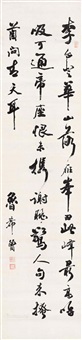 李白登華山落雁峯曰此峯最高呼
吸可通帝座恨未攜謝朓驚人句來搔
首問青天耳